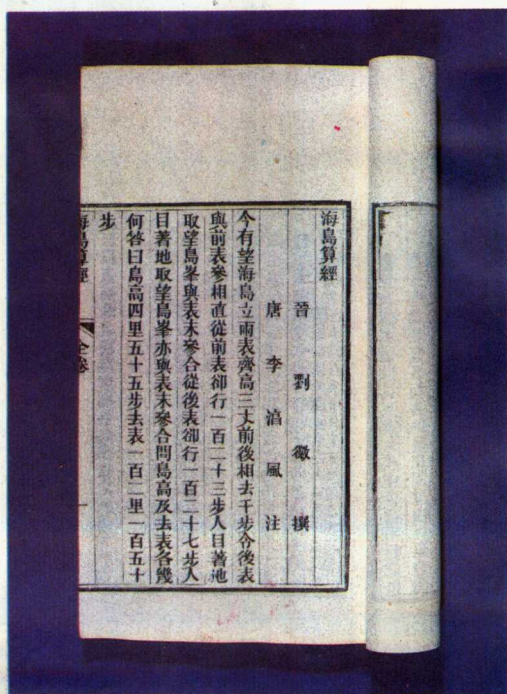 海島算經
晉劉徽撰
唐李淳風注
今有望海島立兩表齊高三丈前後相去千步令後表
與前表參相直從前表卻行一百二十三步人目著地
取望島峯與表末參合從後表卻行一百二十七步人
目著地取望島峯亦與表末參合問島高及去表各幾
何答曰島高四里五十五步去表一百二里一百五十
步
海島算經 全卷 一